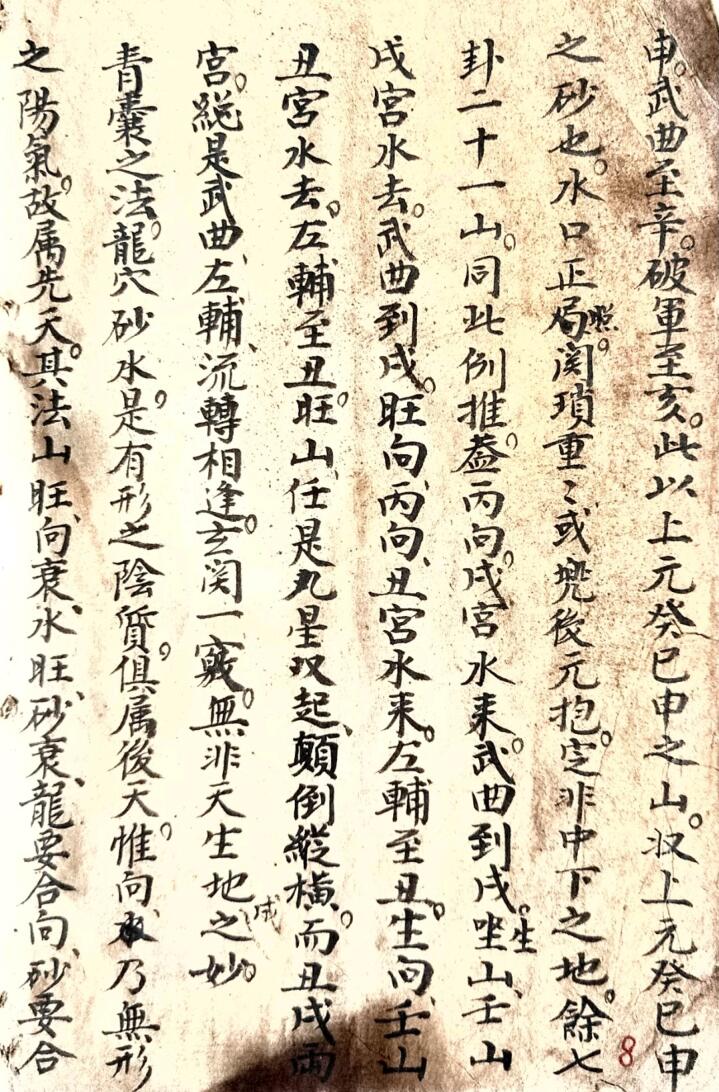 申。武曲至辛。破軍至亥。此以上元癸巳申之山。収上元癸巳申
之砂也。水口正局照。関瑣重〻或兠後元抱。定非中下之地。餘七
卦二十一山。同此例推。葢丙向。戌宮水来。武曲到戌。坐生山、壬山
戌宮水去。武曲到戌。旺向、丙向、丑宮水来。左輔至丑。生向、壬山
丑宮水去。左輔至丑。旺山、任是九星双起、顛倒縱橫、而丑戌両
宮。総是武曲左輔、流轉相逢。玄関一竅。無非天生地成之妙。
青囊之法。龍穴砂水。是有形之陰質。俱属後天。惟向乃無形
之陽氣。故属先天。其法山旺、向衰、水旺、砂衰、龍要合向、砂要合
8